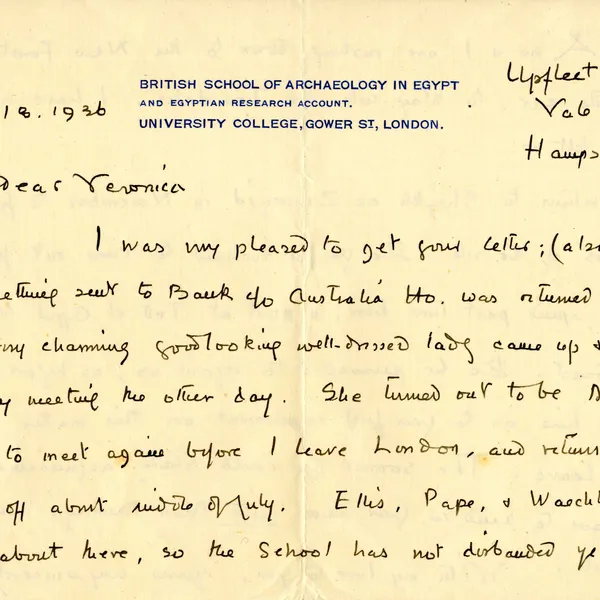 Upfleet
Vale
BRITISH SCHOOL OF ARCHAEOLOGY IN EGYPT
AND EGYPTIAN RESEARCH ACCOUNT.
UNIVERSITY COLLEGE, GOWER ST, LONDON.
18. 1936
Hamps
Dear Veronica
I was very pleased to get your letter; (also
sent to Bank c/o Australia Ho. was returned
charming goodlooking well-dressed lady came up
meeting the other day. She turned out to be
to meet again before I leave London, and return
off about middle of July. Ellis, Pape, &
about there, so the School has not disbanded ye